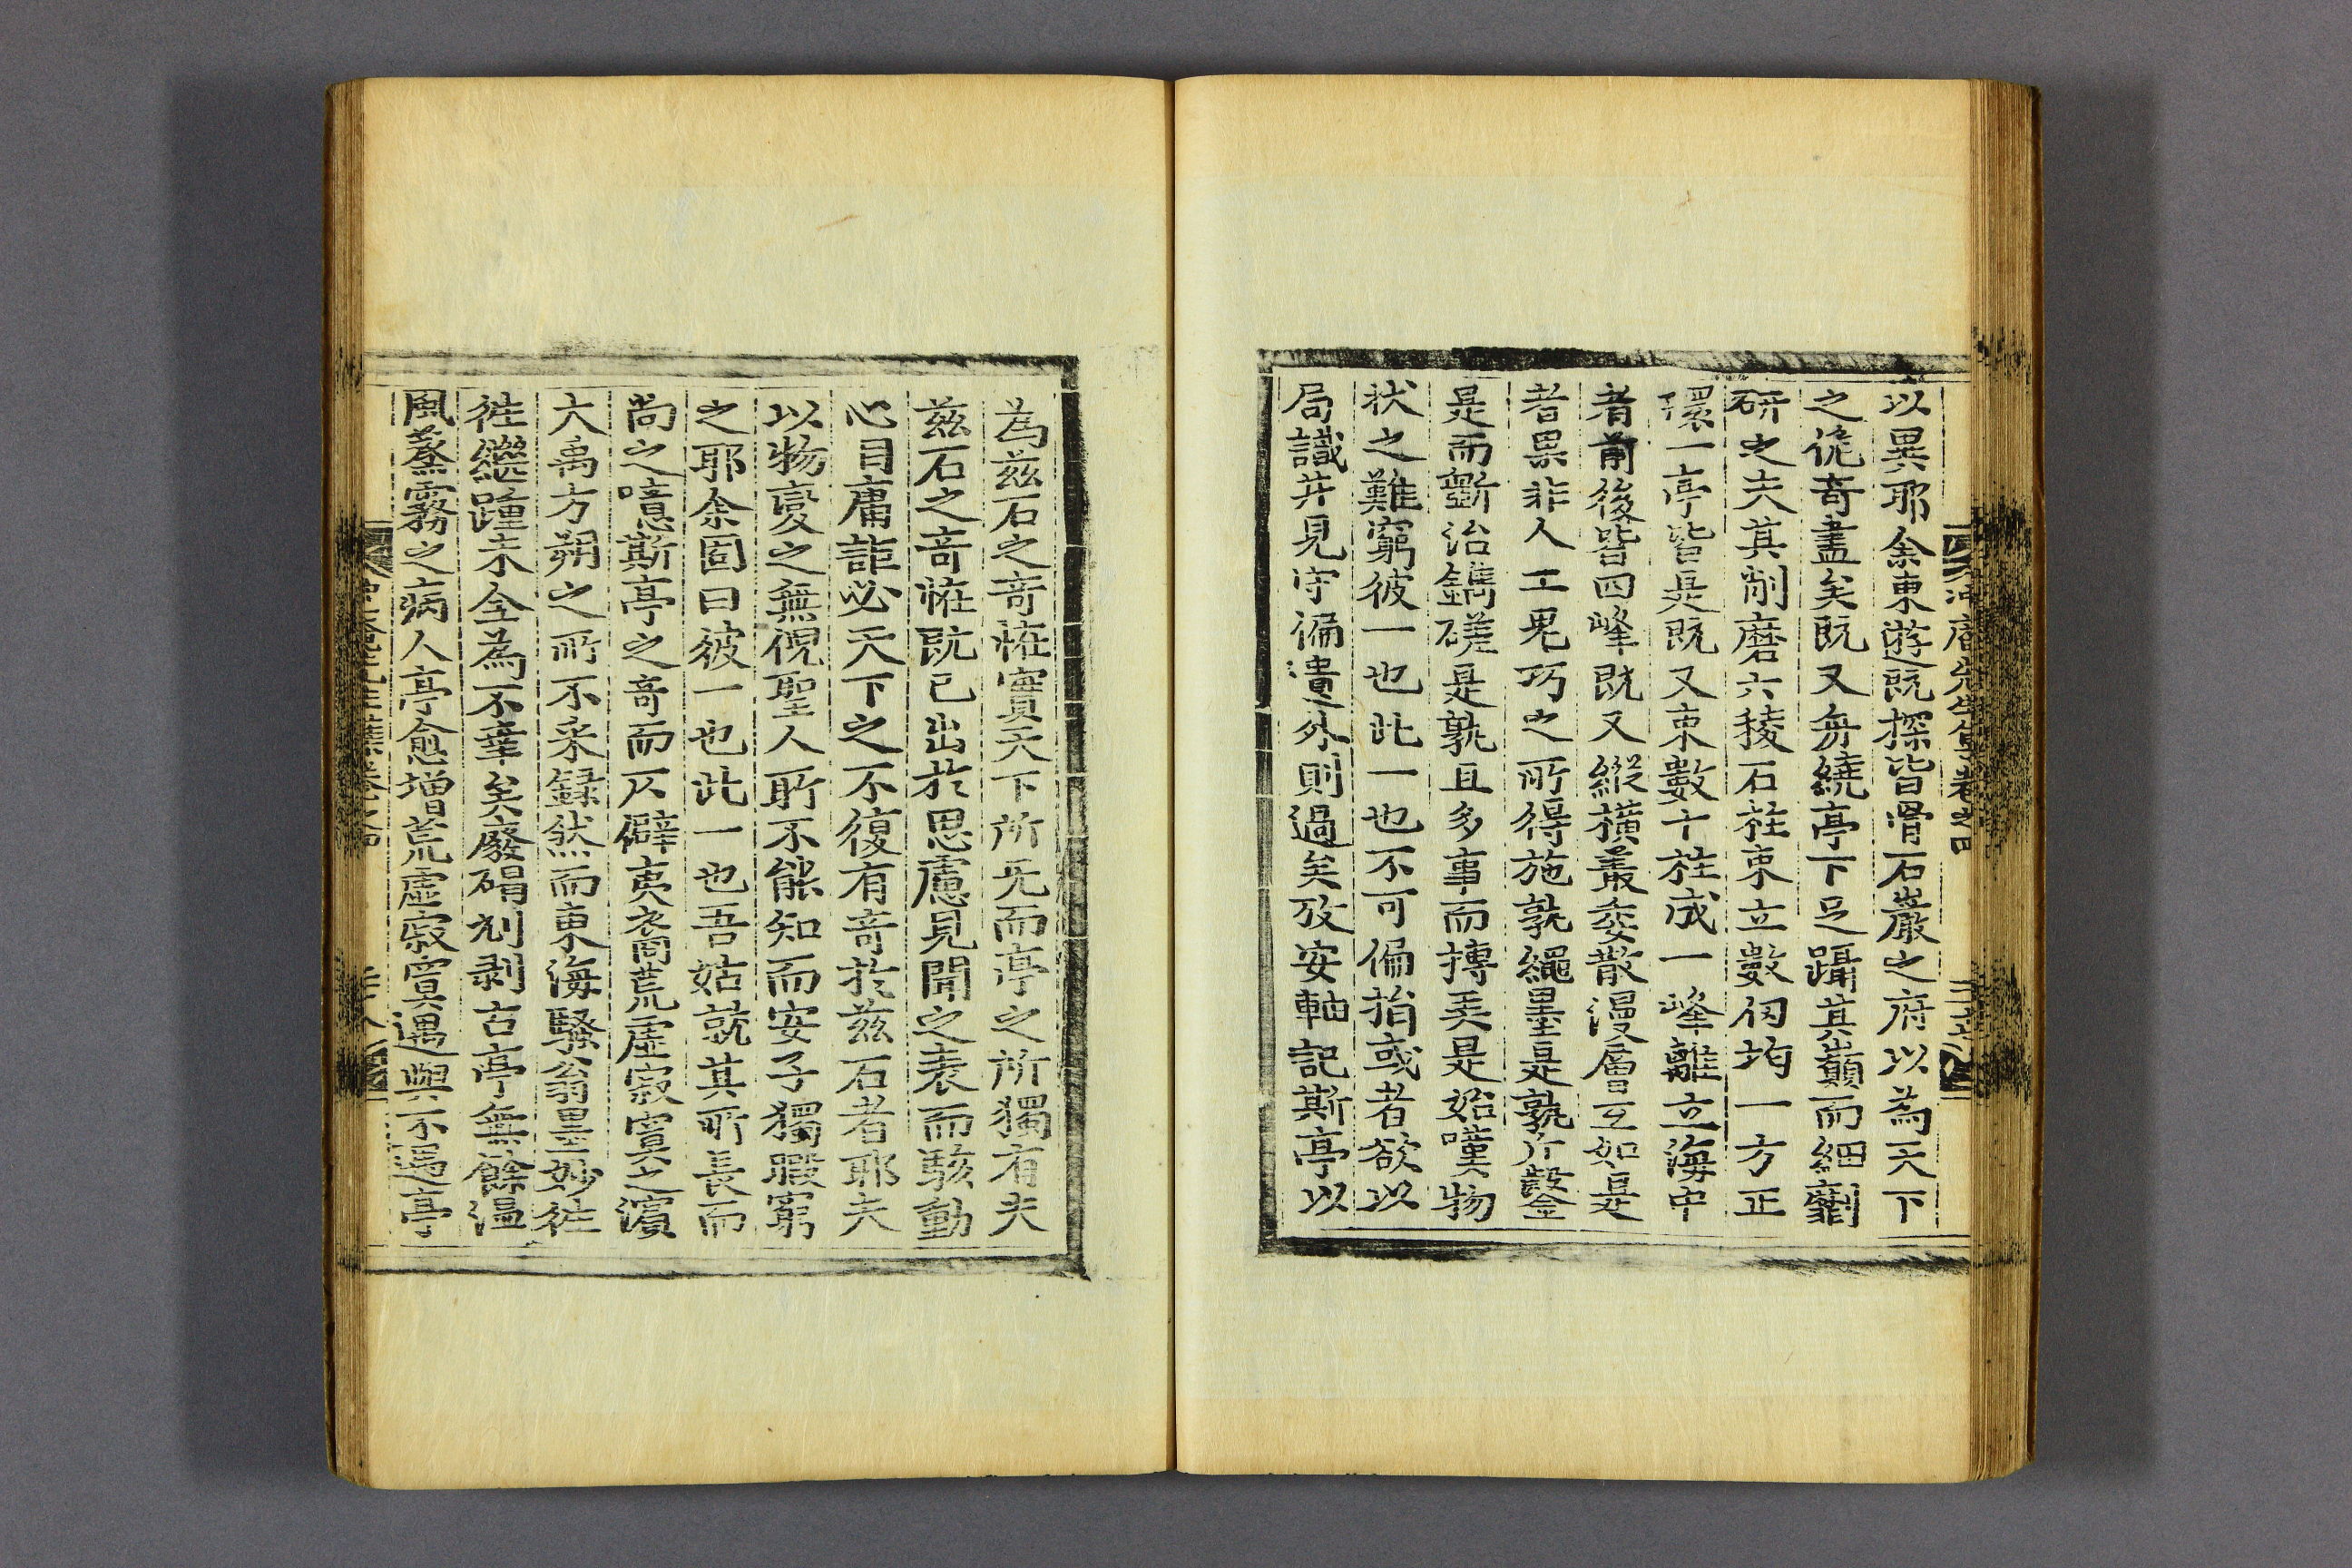 冲庵先生集卷之四
以異耶余東遊旣探皆骨石巖之府以爲天下
之詭奇盡矣旣又旁繞亭下足躡其巓而細劘
研之夫其削磨六稜石柱束立數仞均一方正
環一亭皆是旣又束數十柱成一峰離立海中
者前後皆四峰旣又縱橫叢委散漫層互如是
者果非人工鬼巧之所得施孰繩墨是孰斤鼓金
是而斲治鐫磋是孰且多事而摶弄是始嘆物
狀之難窮彼一也此一也不可偏指或者欲以
局識井見守偏遺外則過矣攷安軸記斯亭以
爲玆石之奇怪實天下所无而亭之所獨有夫
玆石之奇怪旣已出於思慮見聞之表而駭動
心目庸詎必天下之不復有奇於玆石者耶夫
以物變之無倪聖人所不能知而安子獨暇窮
之耶余固曰彼一也此一也吾姑就其所長而
尙之噫斯亭之奇而仄僻夷裔荒虛寂寞之濱
大禹方朔之所不采錄然而東海騷翁墨妙徃
徃繼踵未全爲不幸矣廢碣刓剥古亭無餘溫
風蒸霧之病人亭愈增荒虛寂寞遇與不遇亭